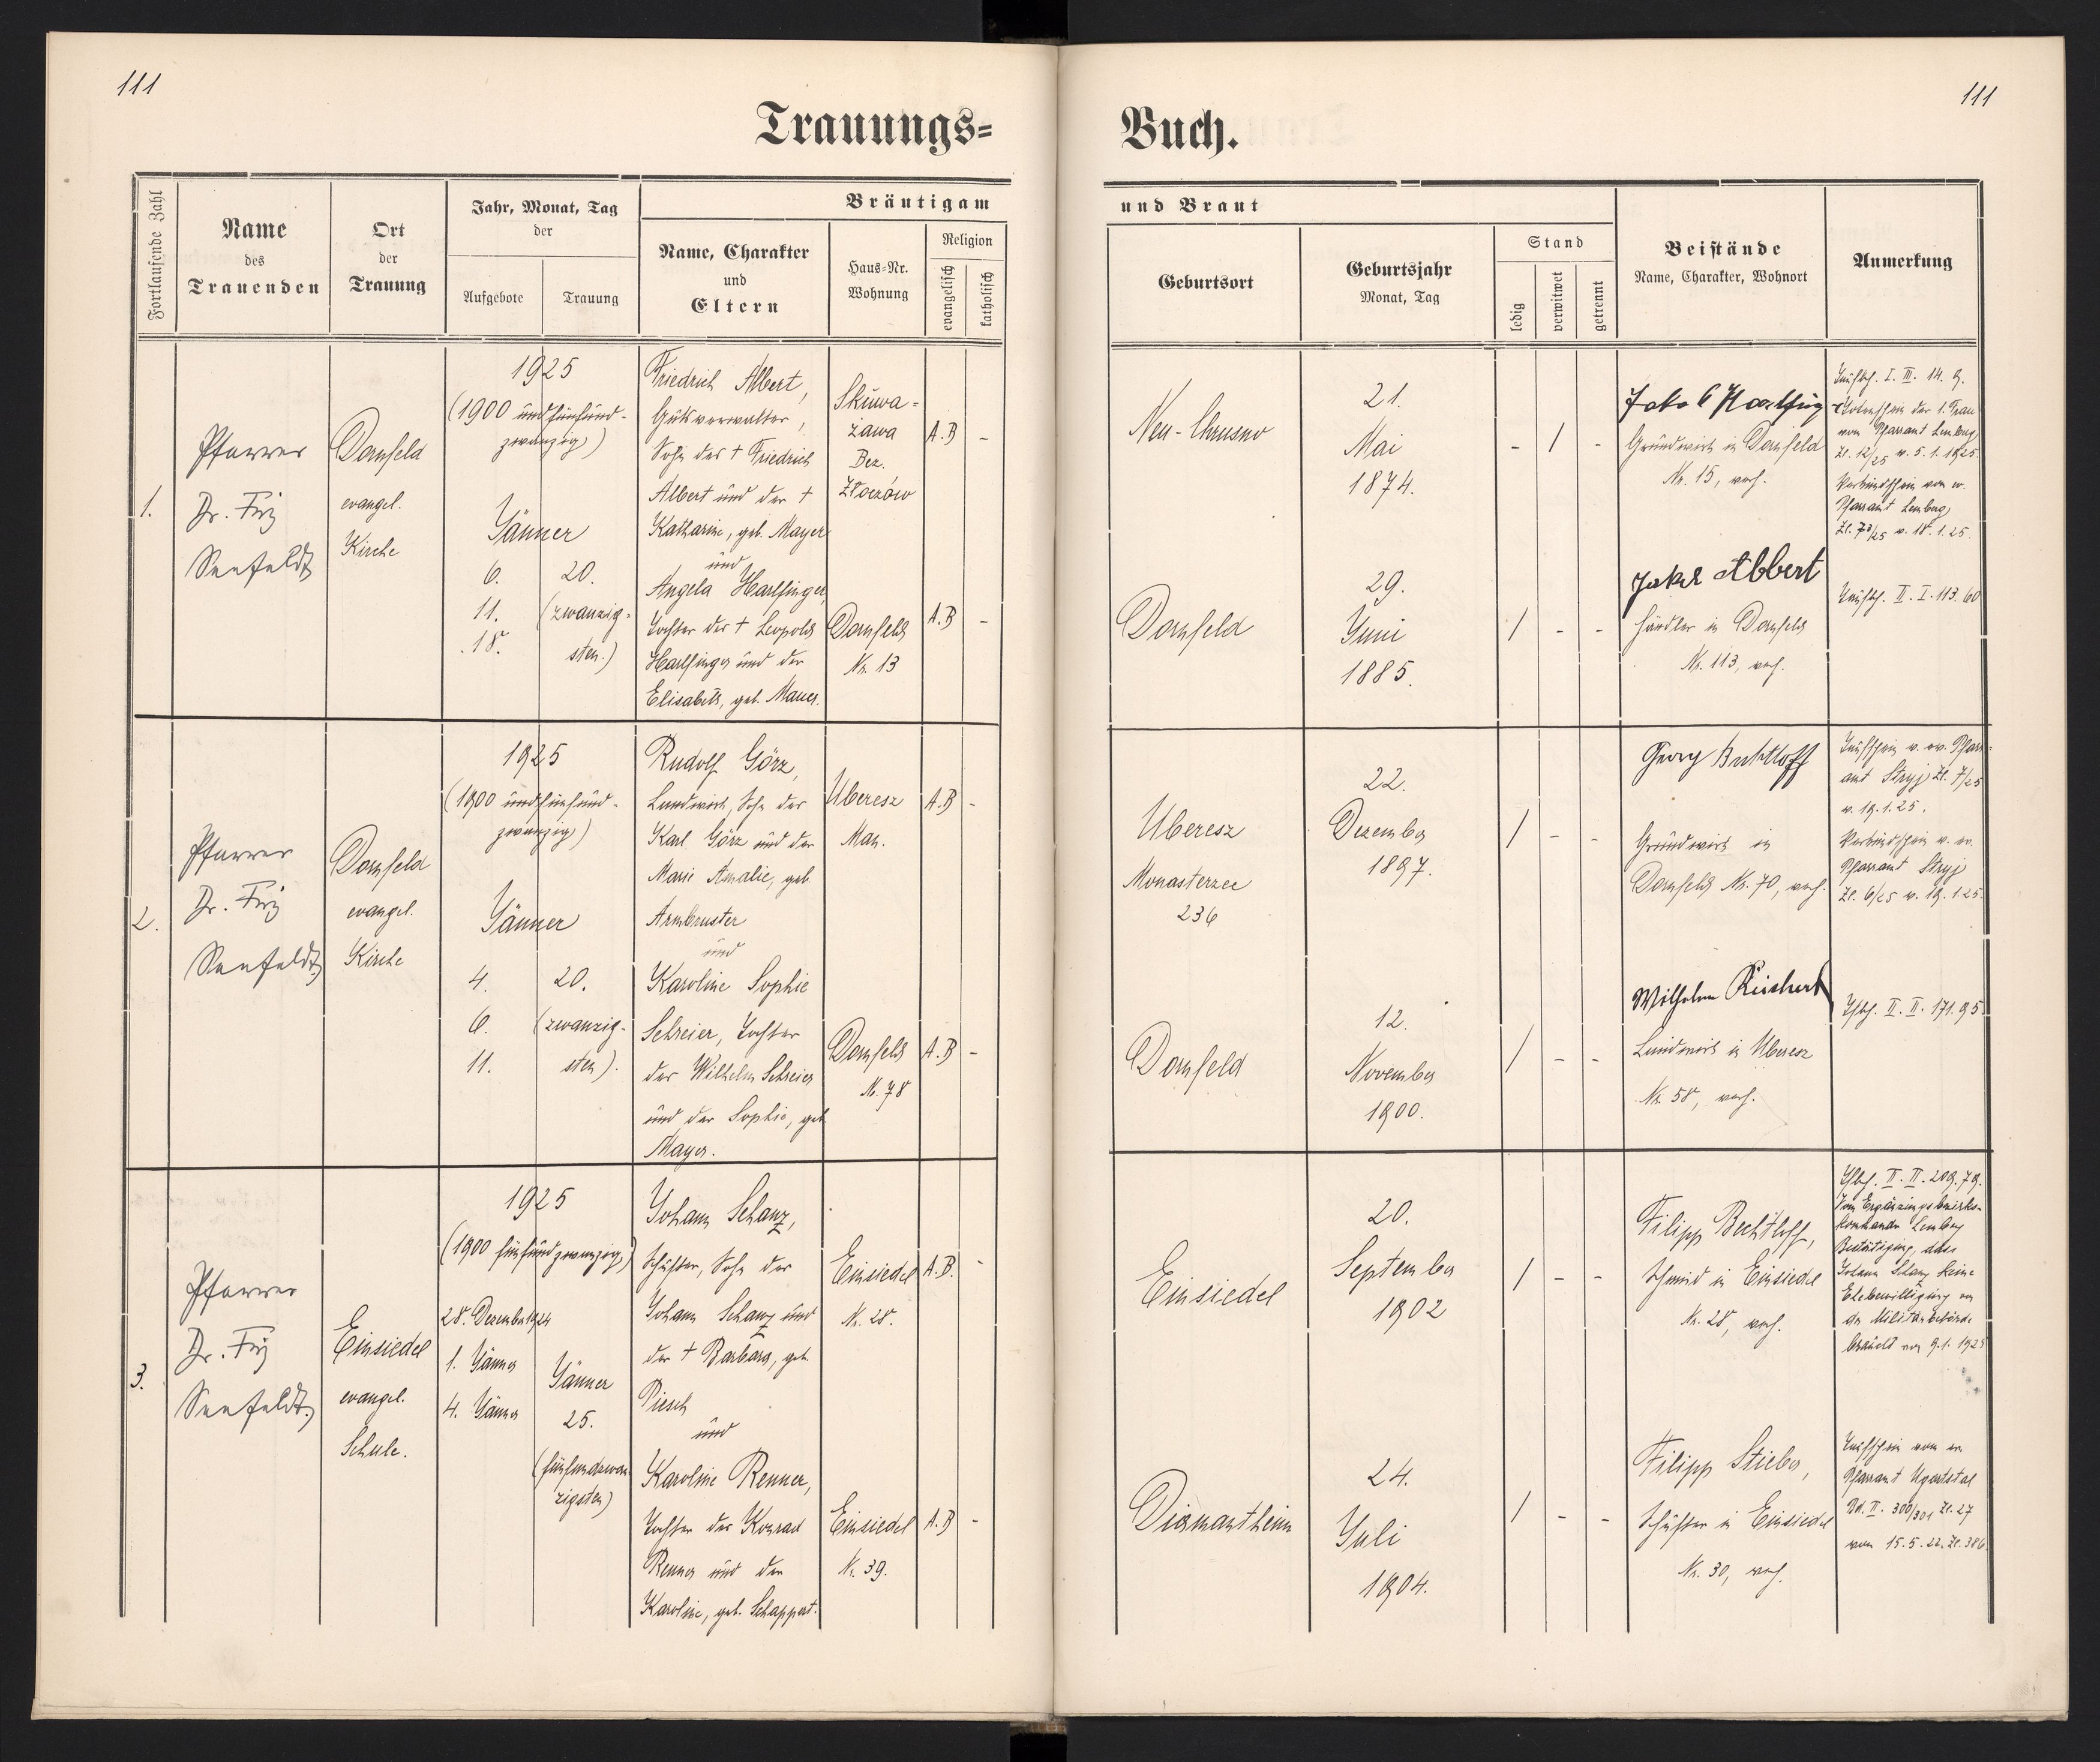 111
111
Trauungs=
Buch.
Fortlaufende Zahl
Name
des
Trauenden
Ort
der
Trauung
Jahr, Monat, Tag
der
Aufgebote
Trauung
Bräutigam
Name, Charakter
und
Eltern
Haus=Nr.
Wohnung
Religion
evangelisch
katholisch
und Braut
Geburtsort
Geburtsjahr
Monat, Tag
Stand
ledig
verwitwet
getrennt
Beistände
Name, Charakter, Wohnort
Anmerkung
1.
Pfarrer
Dr. Friz
Seefeldt
Dornfeld
evangel.
Kirche
1925
(1900 undfünfund-
zwanzig)
Jänner
6.
11.
18.
20.
(zwanzig-
sten.)
Friedrich Albert,
Gutsverwalter,
Sohn des † Friedrich
Albert und der †
Katharine, geb. Mayer
und
Angela Harlfinger,
Tochter des † Leopold
Harlfinger und der
Elisabeth, geb. Mauer.
Skuwa-
zawa
Bez.
Złoczów
A.B -
Dornfeld
Nr. 13
A.B -
Neu-Chrusno
21.
Mai
1874.
- / -
Dornfeld
29.
Juni
1885.
/ - -
Grundwirt in Dornfeld
Nr. 15, verh.
Jakob Albert
Händler in Dornfeld
Nr. 113, verh.
Taufb. I. III. 14. 9.
Totenschein der 1. Frau
vom Pfarramt Lemberg,
Zl. 12/25 v. 5. 1. 1925.
Verkündschein von ev.
Pfarramt Lemberg,
Zl. 73/25 v. 18. 1. 25.
Taufb. II. I. 113. 60
2.
Pfarrer
Dr. Friz
Seefeldt
Dornfeld
evangel.
Kirche
1925
(1900 undfünfund-
zwanzig)
Jänner
4.
6.
11.
20.
(zwanzig-
sten).
Rudolf Görz,
Landwirt, Sohn des
Karl Görz und der
Marie Amalie, geb.
Armbruster
und
Karoline Sophie
Schreier, Tochter
des Wilhelm Schreier
und der Sophie, geb.
Mayer.
Uberesz
Man.
A.B -
Dornfeld
Nr. 78
A.B -
Uberesz
Monasterzec
236
22.
Dezember
1897.
/ - -
Dornfeld
12.
November
1900.
/ - -
Georg
Grundwirt in
Dornfeld Nr. 70, verh.
Wilhelm Reichert
Landwirt in Uberesz
Nr. 58, verh.
Taufschein v. ev. Pfarr-
amt Stryj Zl. 7/25
v. 19. 1. 25.
Verkündschein v. ev.
Pfarramt Stryj
Zl. 6/25 v. 19. 1. 25.
Tfb. II. II. 171. 95
3.
Pfarrer
Dr. Friz
Seefeldt
Einsiedel
evangel.
Schule.
1925
(1900 fünfundzwanzig)
28. Dezember 1924
1. Jänner
4. Jänner
Jänner
25.
(fünfundzwan-
zigsten)
Johann Schanz,
Schuster, Sohn des
Johann Schanz und
der † Barbara, geb.
Piesch
und
Karoline Renner,
Tochter des Konrad
Renner und der
Karoline, geb. Schappert.
Einsiedel
Nr. 28.
A.B. -
Einsiedel
Nr. 39.
A.B -
Einsiedel
20.
September
1902
/ - -
Diamantheim
24.
Juli
1904.
/ - -
Filipp Bechtloff,
Schmid in Einsiedel
Nr. 28, verh.
Filipp Stieber,
Schuster in Einsiedel
Nr. 30, verh.
Tfb. II. II. 209. 79.
Vom Ergänzungsbezirks-
kommando Lemberg
Bestätigung, dass
Johann Schanz keine
Ehebewilligung von
der Militärbehörde
braucht vom 9. 1. 1925
Taufschein vom ev.
Pfarramt Ugartstal
Bd. II. 300/301 Zl. 27
vom 15. 5. 22. Zl. 386